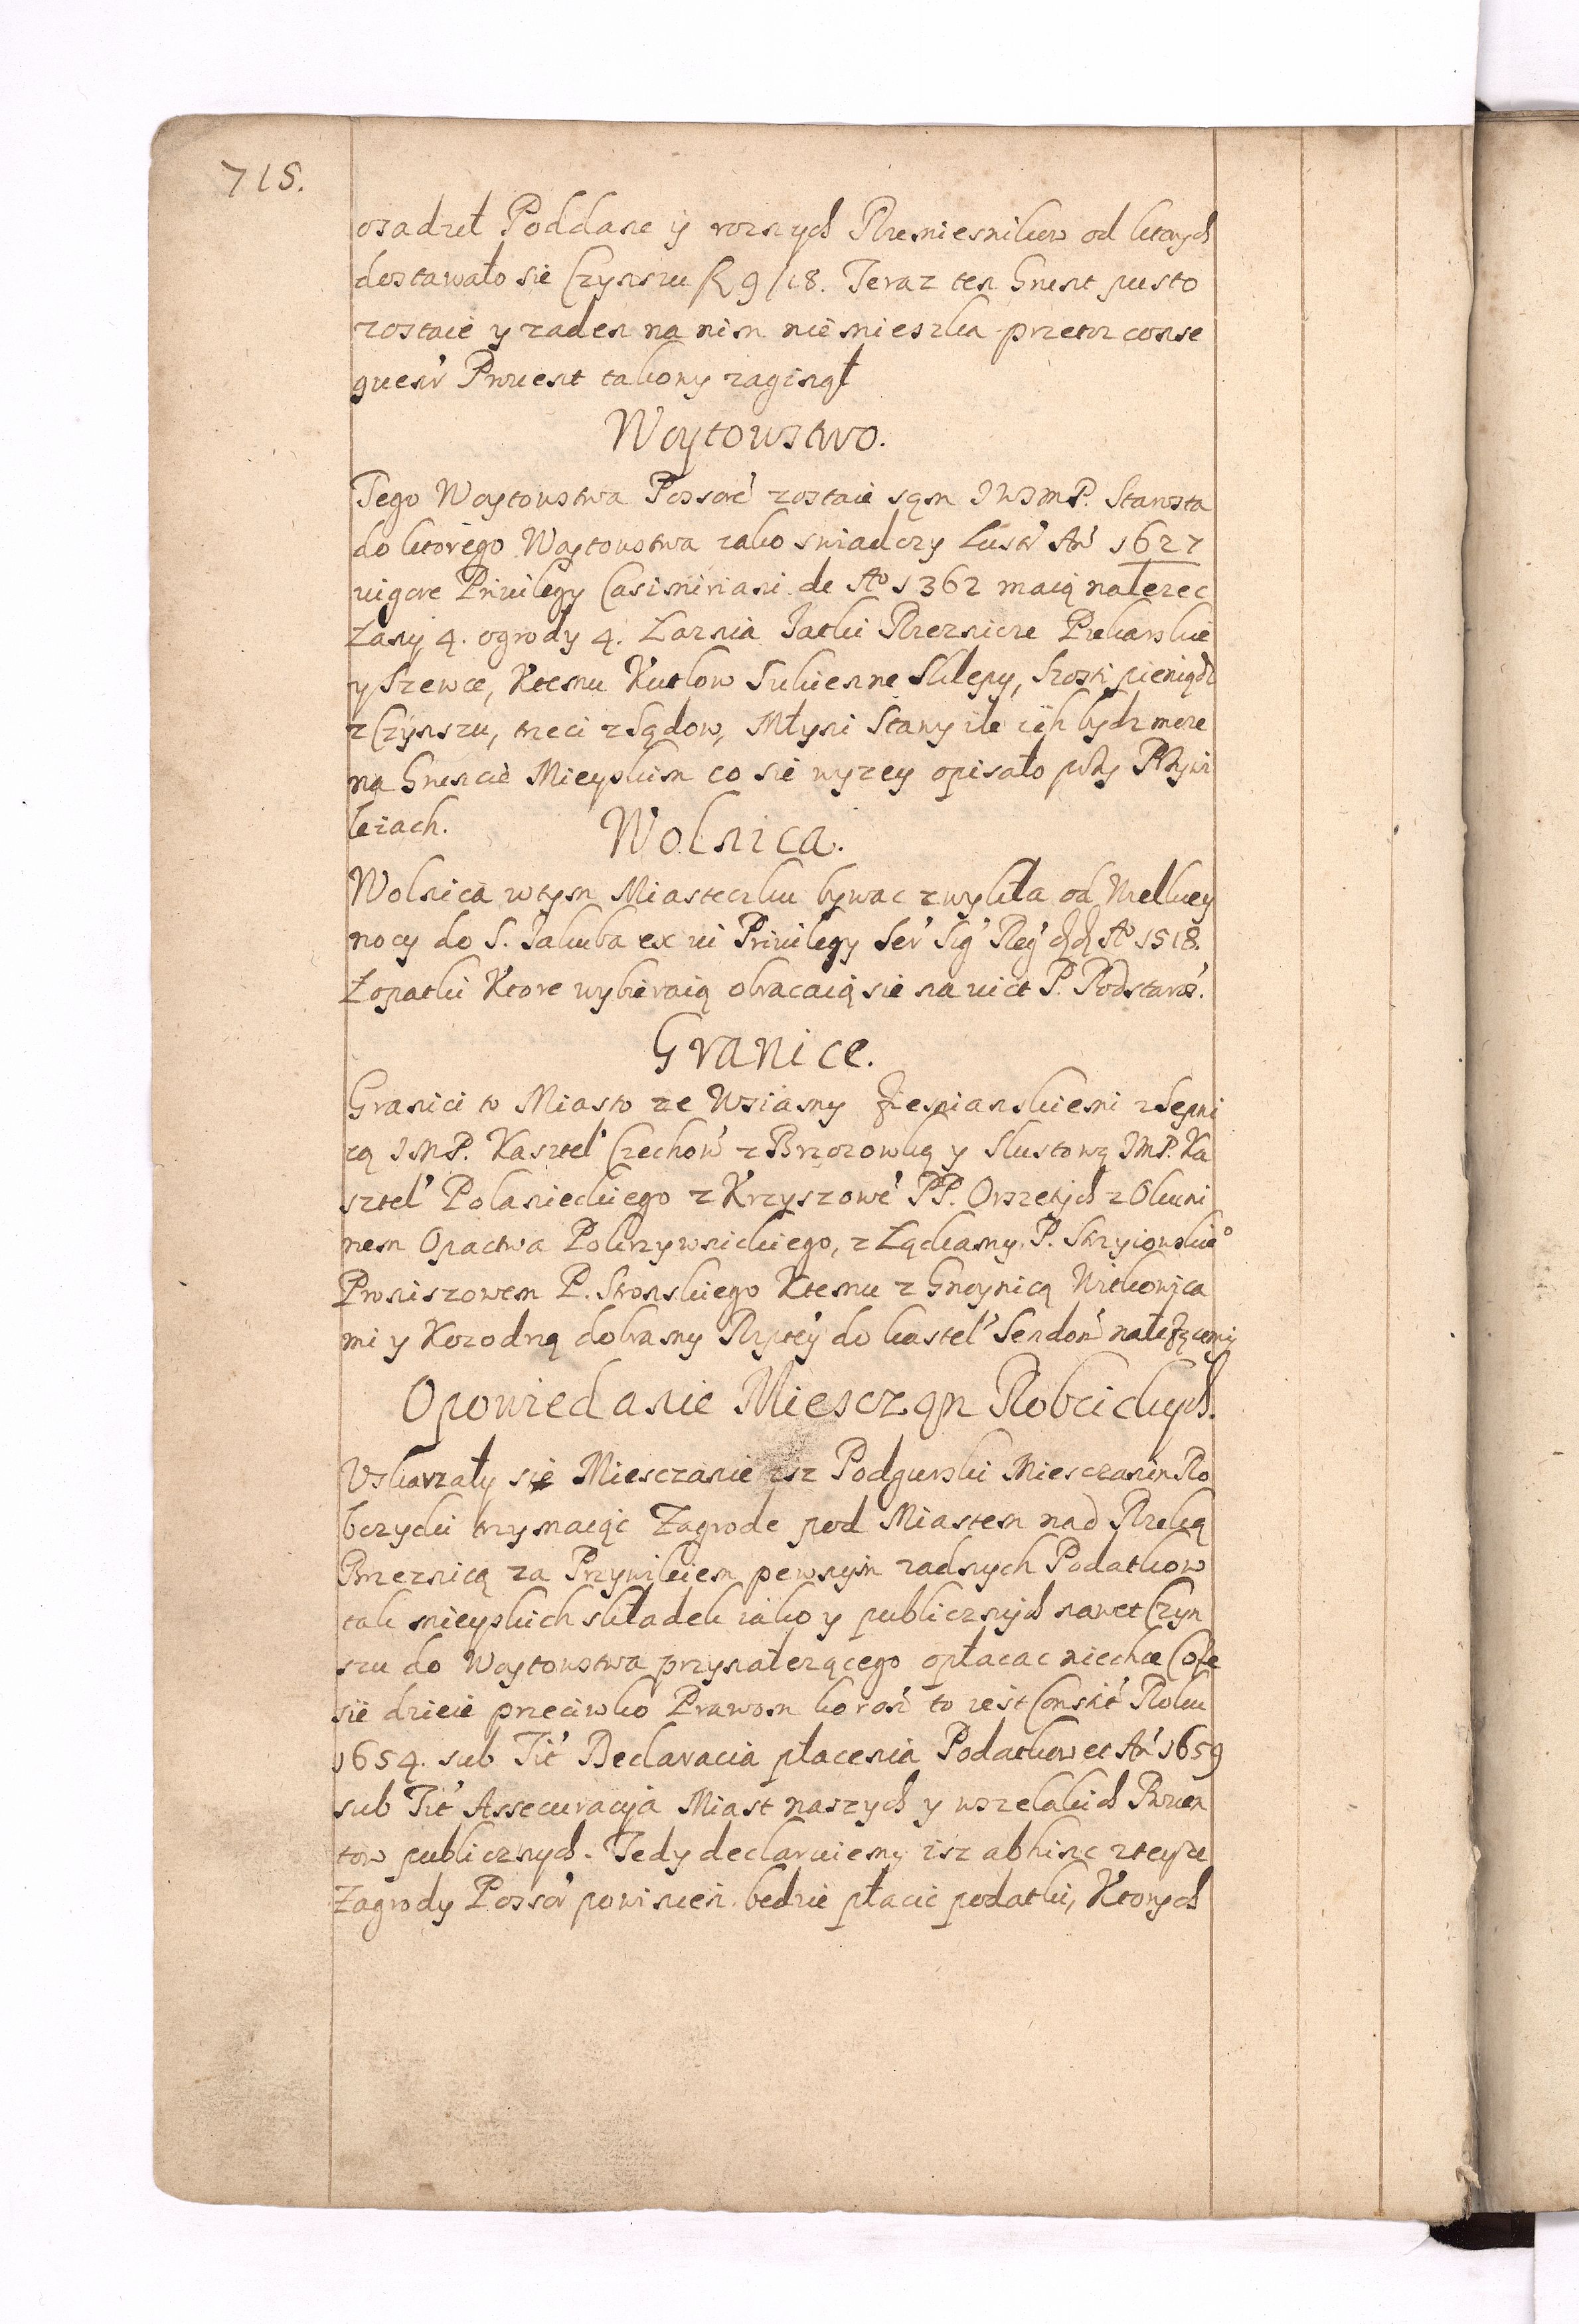 715.
osadził Poddane y roznych Rzemiesnikow od ktorych
dostawało sie Czynszu fl 9/18. Teraz ten Grunt pusto
zostaie y zaden na nim nie mieszka przetoz conse
quenr Prouent takowy zaginął
Woytowstwo.
Tego Woytowstwa Possore zostaie sąm JWJmP. Starosta
do ktorego Woytowstwa iako swiadczy Lustr An 1627
uigore Priuilegy Casimiriani de Ao 1362 maią nalezec
Łany 4. ogrody 4. Łaznia Jatki Rzeznicze Piekarskie
y Szewce, Ktemu Kutlow Sukienne Sklepy, Szosti pieniądz
z Czynszu, trzeci z Sądow, Młyni Stawy ile ich bydz moze
na Gruncie Mieyskim co sie wyzey opisało przy Przywi
leiach.
Wolnica.
Wolnica w tym Miasteczku bywac zwykła od Wielkiey
nocy do S. Jakuba ex ui Priuilegy Ser Sig Reg dd Ao 1518.
Łopatki Ktore wybieraią obracaią sie na uict P. Podstaros.
Granice.
Granici to Miasto ze Wsiamy Ziemianskiemi z Sepni
cą JMP. Kasztel Czechow z Brzozowką y Skustową JMP. Ka
sztel Polanieckiego z Krzyszowe PP. Orszetych z Okuni
nem Opactwa Pokrzywnickiego, z Łąckamy P. Strzyiowskieo
Proniszowem P. Stronskiego Ktemu z Gnoynicą Witkowica
mi y Kozodrzą dobramy Rzptey do kastel Sendom nalezącemi
Opowiedanie Miesczan Robcickych.
Uskarzały sie Miesczanie isz Podgurski Miesczanin Ro
bczycki trzymaiąc Zagrode pod Miastem nad Rzeką
Brzeznicą za Przywileiem pewnym zadnych Podatkow
tak mieyskich składek iako y publicznych nawet Czyn
szu do Woytowstwa przynalezącego opłacac niechce Co ze
sie dzieie przeciwko Prawom koron to iest Constit Roku
1654. sub Tit Declaracia płacenia Podatkow et An 1659
sub Tit Assecuracya Miast naszych y wszelakich Prouen
tow publicznych. Tedy declaruiemy isz abhinc z teysze
Zagrody Possor powinien bedzie płacic podatki, Ktorych